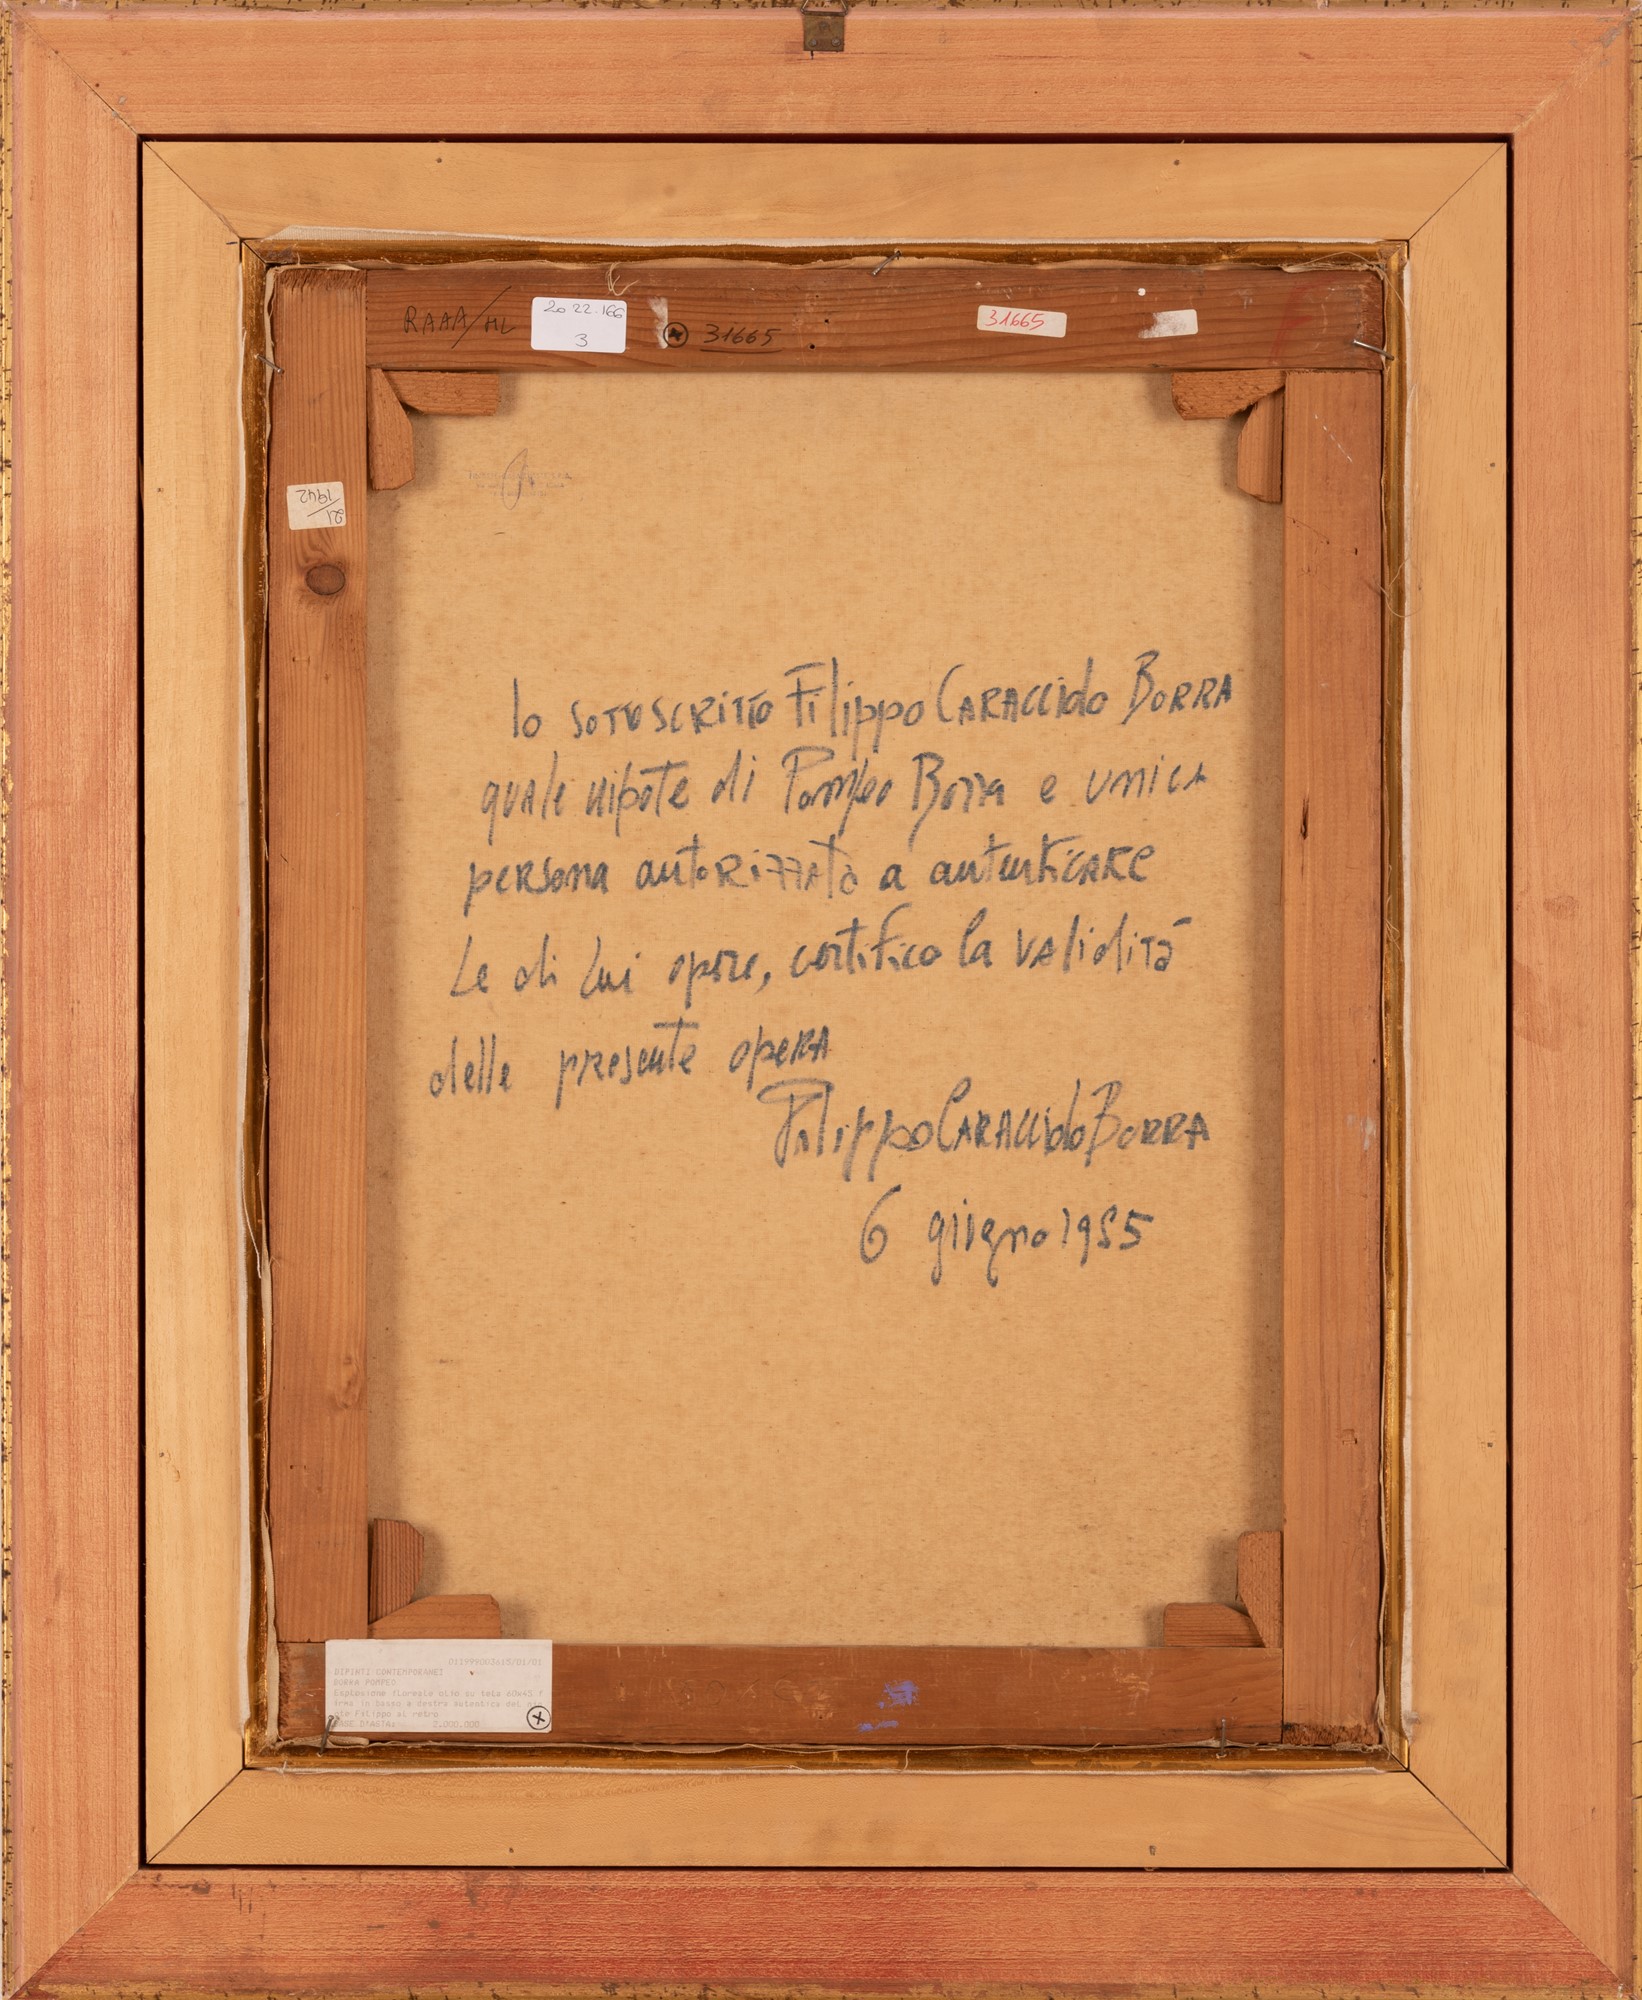 RAAA/ML
2022-166
3
31665
31665
21/
1942
Io sottoscritto Filippo Caracciolo Borra
quale nipote di Pompeo Borra e unica
persona autorizzata a autenticare
le di lui opere, certifico la validità
delle presente opera
Filippo Caracciolo Borra
6 giugno 1985
011999003615/01/01
DIPINTI CONTEMPORANEI
BORRA POMPEO
Esplosione floreale olio su tela 60x45 f
irma in basso a destra autentica del nip
ote Filippo al retro
BASE D'ASTA: 2.000.000